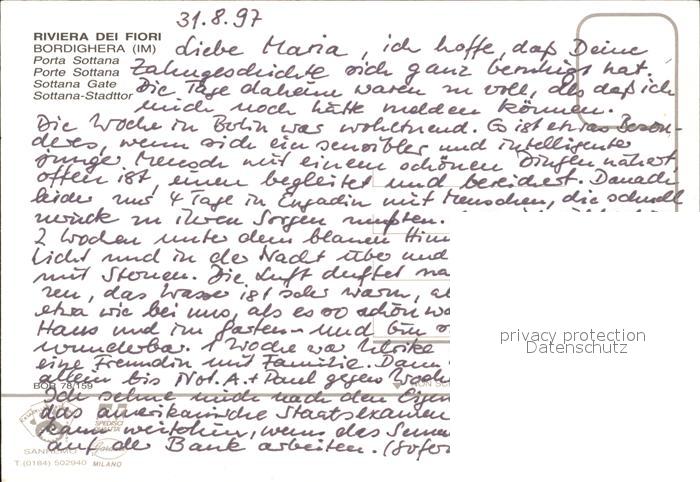 31.8.97
RIVIERA DEI FIORI
BORDIGHERA (IM)
Porta Sottana
Porte Sottana
Sottana Gate
Sottana-Stadttor
Liebe Maria, ich hoffe, daß Deine
Zahngeschichte sich ganz beruhigt hat.
Die Tage daheim waren zu voll, als daß ich
mich noch hätte melden können.
Die Woche in Berlin war wohltuend. Es ist etwas Beson-
deres, wenn sich ein sensibler und intelligenter
junger Mensch mit einem schönen Dingen nähert,
offen ist, einen begleitet und bereichert. Danach
leider nur 4 Tage in Engadin mit Menschen, die schnell
zurück zu ihren Sorgen mußten.
2 Wochen unter dem blauen Him
Licht und in der Nacht über und
mit Sternen. Die Luft duftet na
ren, das Wasser ist sehr warm, a
etwa wie bei uns, als es so schön wa
Haus und im Garten - und bin
wunderbar. 1 Woche war Ulrike
eine Freundin mit Familie. Dann
allein bis Not. A. + Paul gegen
Ich sehne mich nach den
das amerikanische Staatsexamen
kann weitertun, wenn das
auf der Bank arbeiten. (Sofer
privacy protection
Datenschutz
BOR 78/159
SANREMO
T.(0184) 502940 MILANO